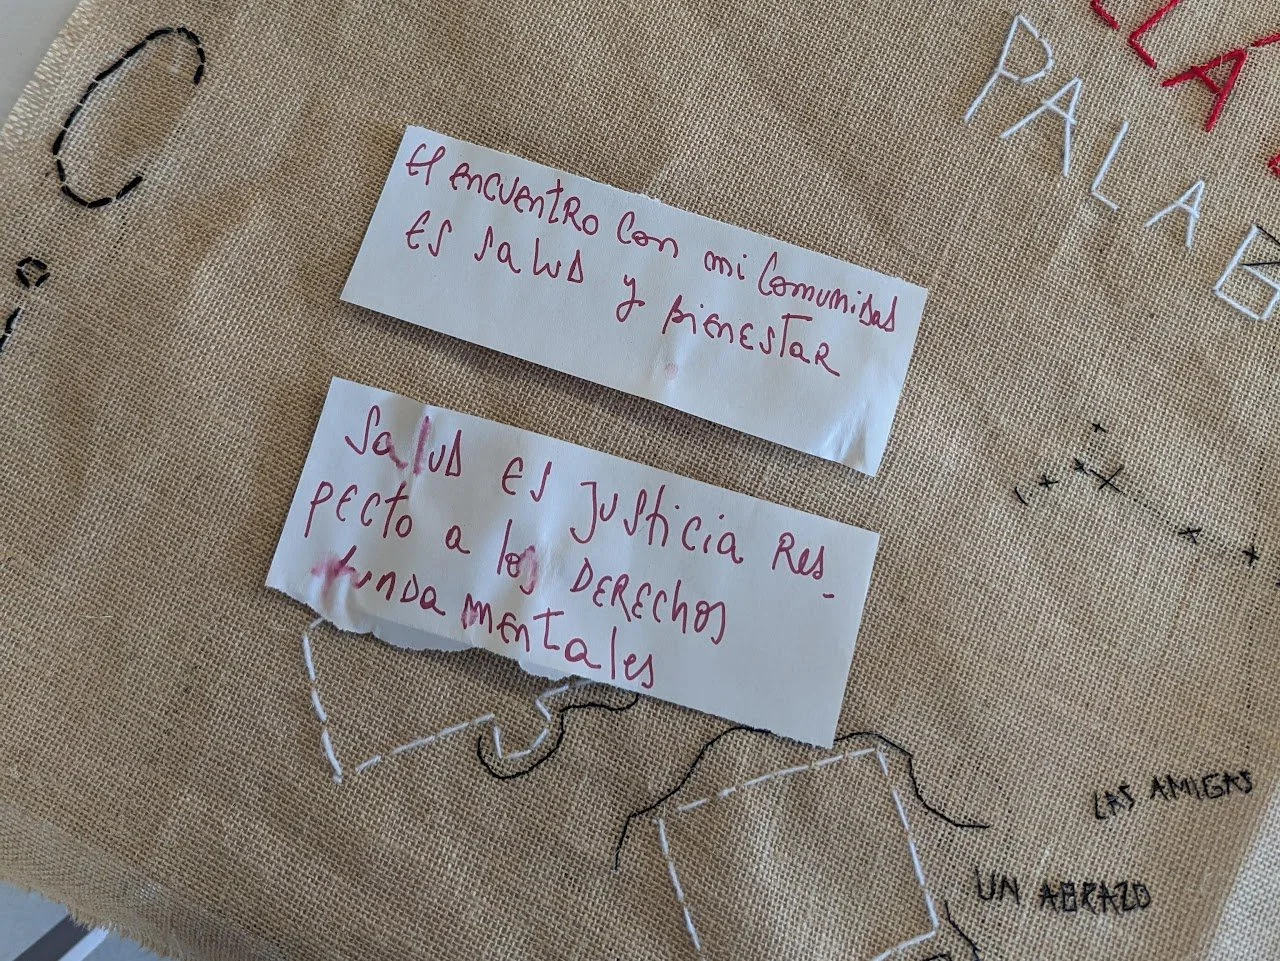 LLA
PALAB
El encuentro con mi comunidad
es salud y bienestar
Salud es justicia res-
pecto a los DERECHOS
fundamentales
LAS AMIGAS
UN ABRAZO